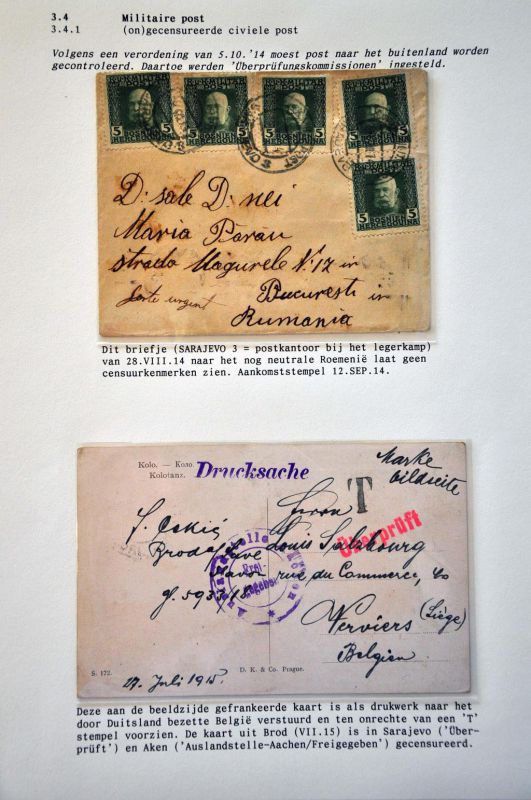 3.4 Militaire post
3.4.1 (on)gecensureerde civiele post
Volgens een verordening van 5.10.'14 moest post naar het buitenland worden
gecontroleerd. Daartoe werden 'Überprüfungskommissionen' ingesteld.
5 BOSNIEN HERCEGOVINA 5
5 BOSNIEN HERCEGOVINA 5
5 BOSNIEN HERCEGOVINA 5
5 BOSNIEN HERCEGOVINA 5
K.U.K. MILITÄR POST
5 BOSNIEN HERCEGOVINA 5
D. sale D. nei
Maria Parau
strada Magurele No. 17 in
forte urgent
Bucuresti in
Rumania
Dit briefje (SARAJEVO 3 = postkantoor bij het legerkamp)
van 28.VIII.14 naar het nog neutrale Roemenië laat geen
censuurkenmerken zien. Aankomststempel 12.SEP.14.
Kolo. — Коло.
Kolotanz.
Drucksache
Marke
bildseite
T
Herrn
Überprüft
Brod a/Save
Louis Salzbourg
rue du Commerce, 60
Verviers (Liège)
Belgien
27. Juli 1915
S. 172.
D. K. & Co. Prague.
Deze aan de beeldzijde gefrankeerde kaart is als drukwerk naar het
door Duitsland bezette België verstuurd en ten onrechte van een 'T'
stempel voorzien. De kaart uit Brod (VII.15) is in Sarajevo ('Über-
prüft') en Aken ('Auslandstelle-Aachen/Freigegeben') gecensureerd.